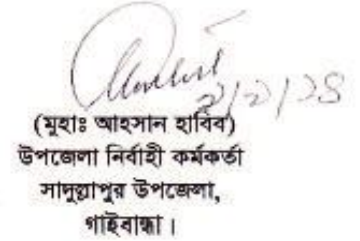 (মুহাঃ আহসান হাবিব)
উপজেলা নির্বাহী কর্মকর্তা
সাদুল্লাপুর উপজেলা,
গাইবান্ধা।